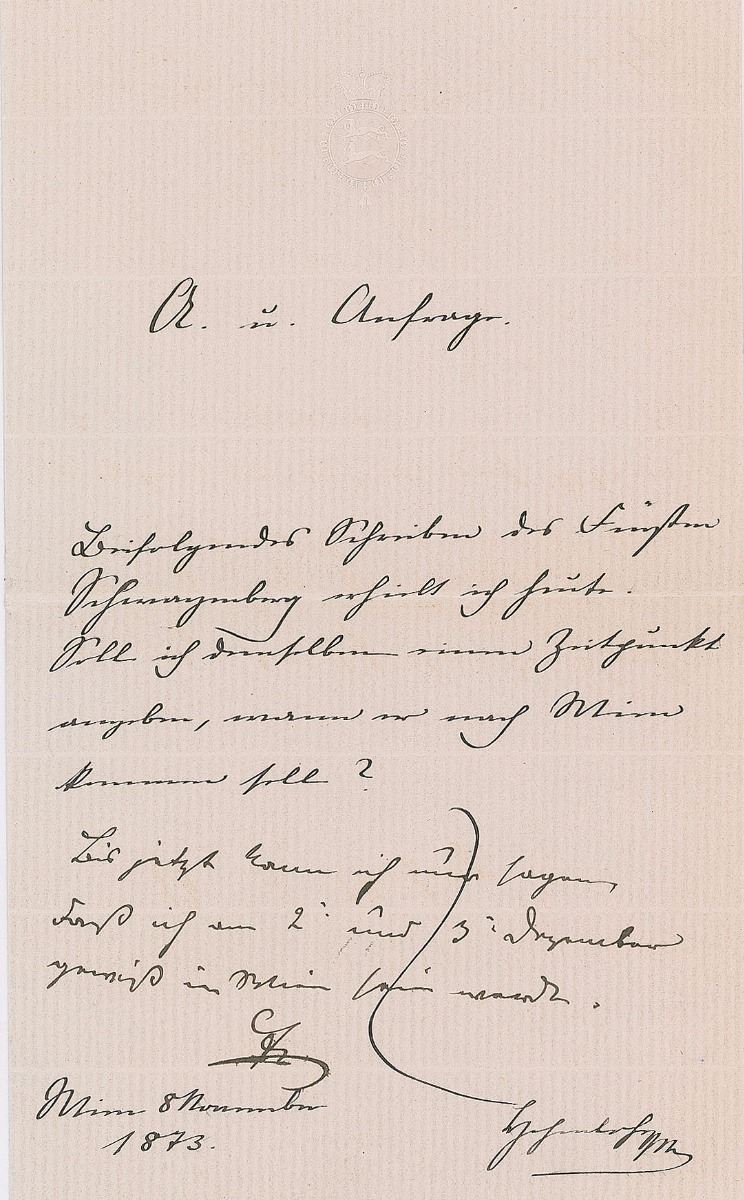 A. u. Anfrage.
Beifolgendes Schreiben des Fürsten
Schwarzenberg erhielt ich heute.
Soll ich demselben einen Zeitpunkt
angeben, wann er nach Wien
kommen soll?
Bis jetzt kann ich nur sagen,
daß ich am 2: und 3: Dezember
gewiß in Wien sein werde.
Wien 8 November
1873.
Hohenlohe